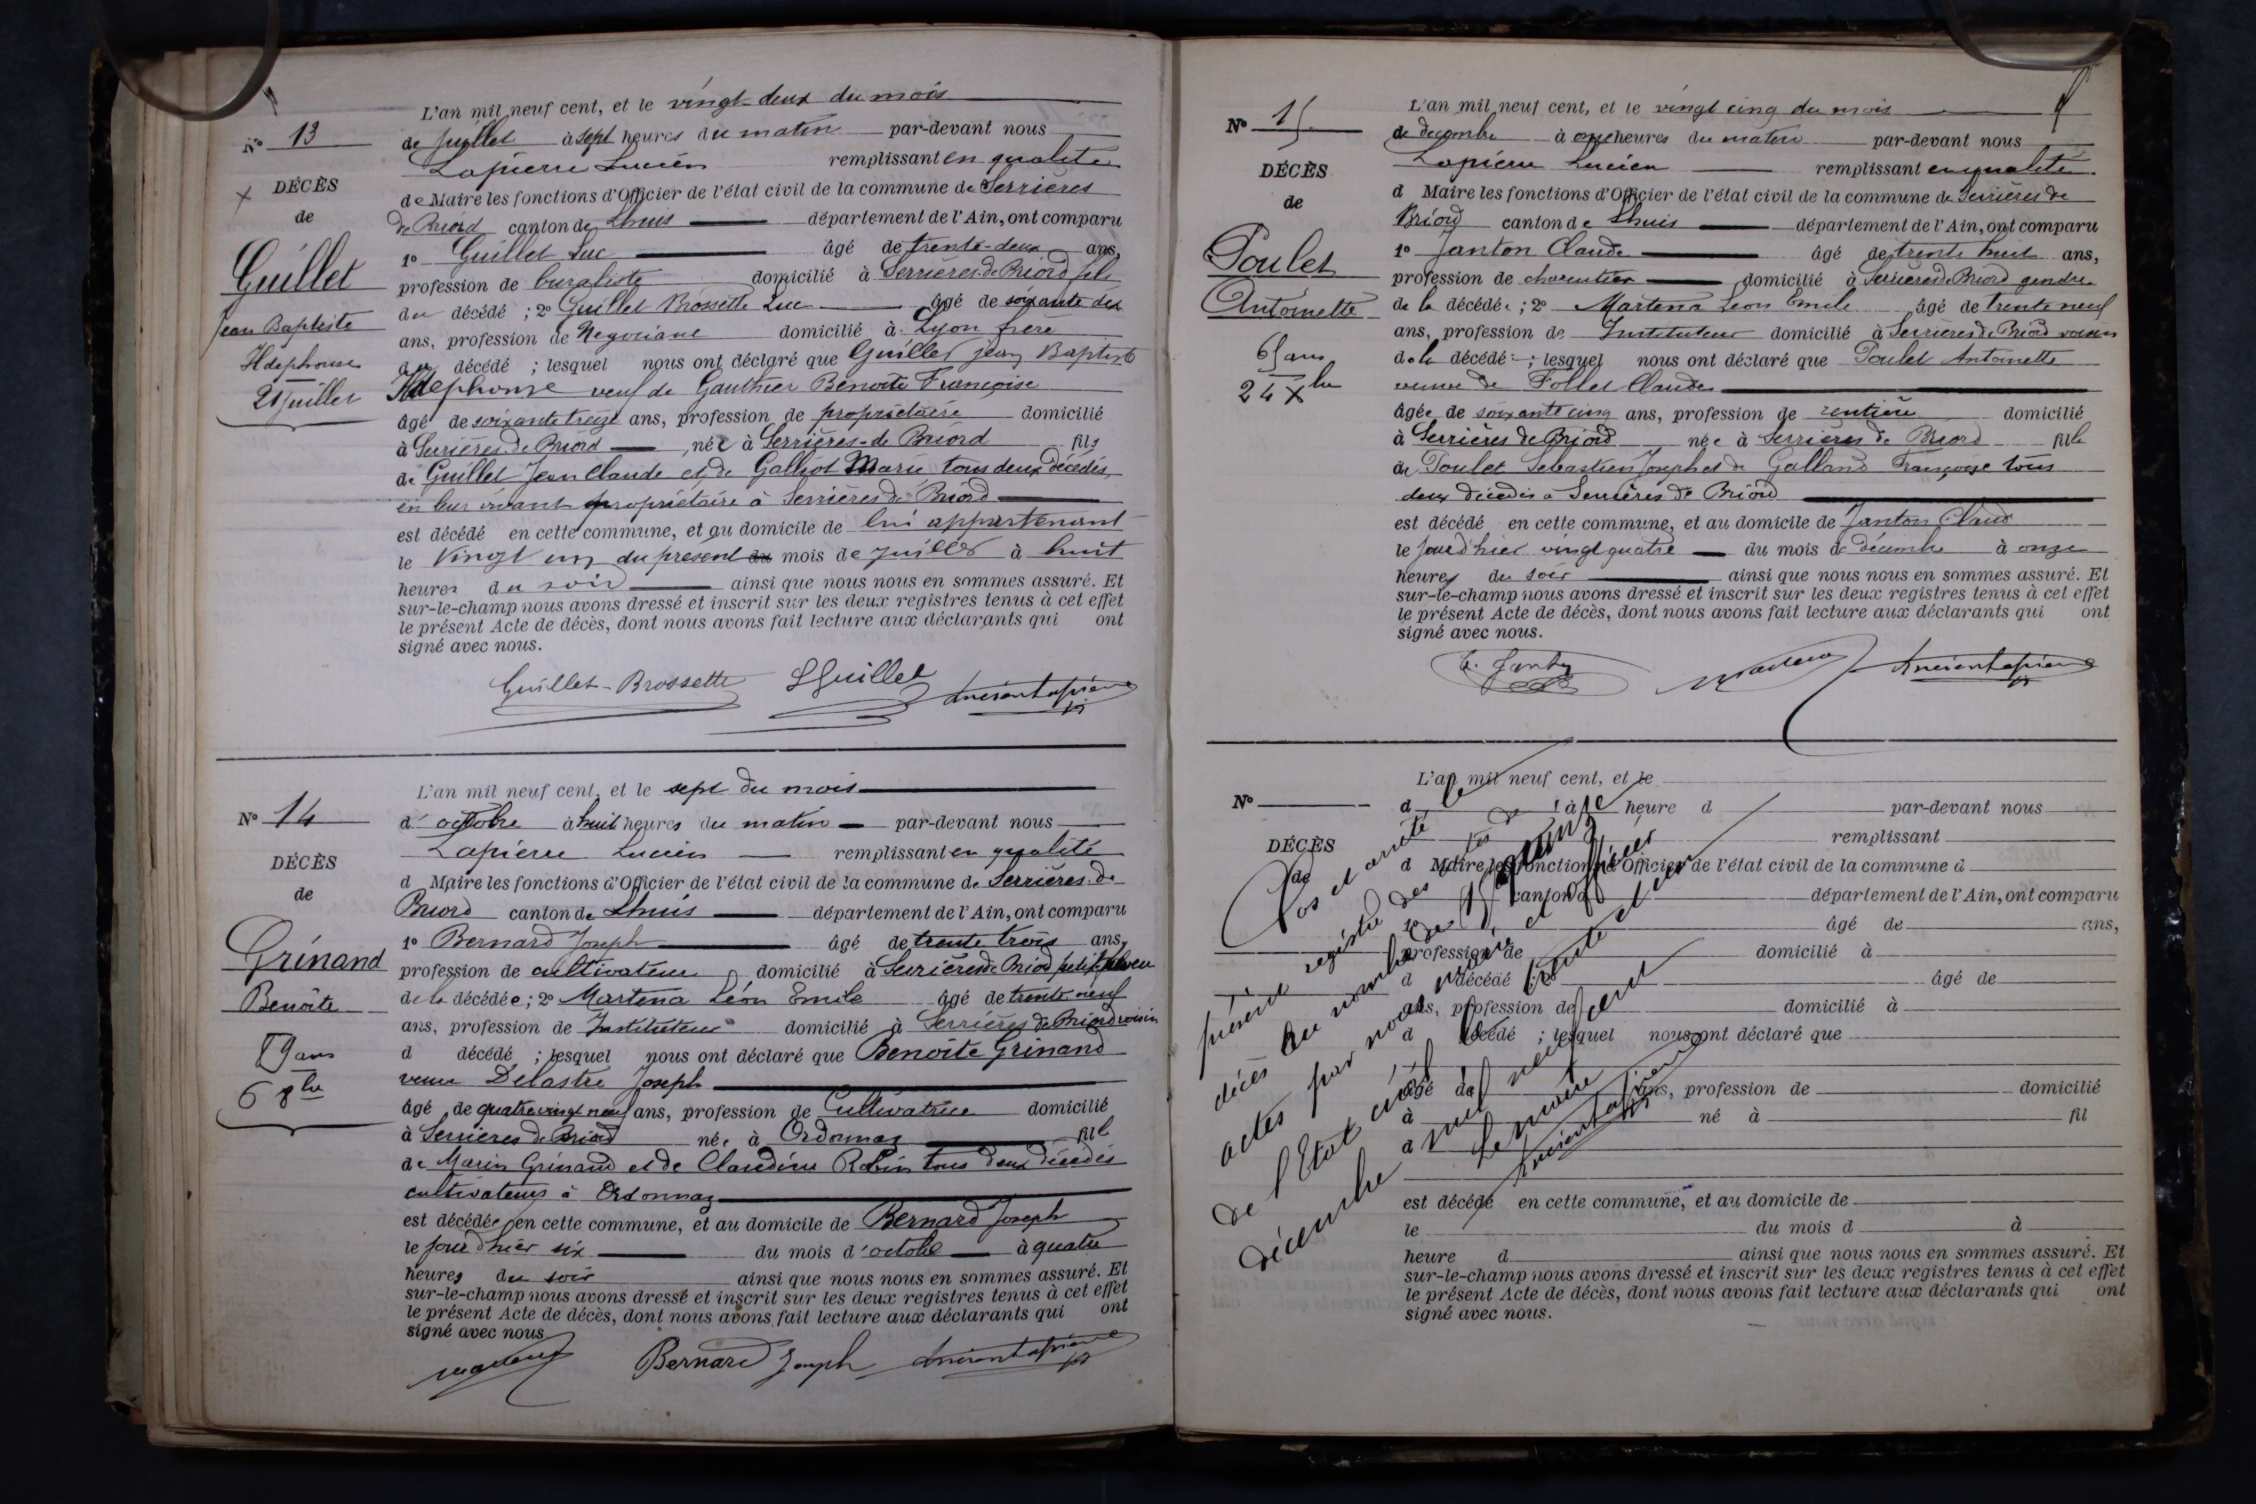 N° 13
DÉCÈS
de
Guillet
Jean Baptiste
Ildephonse
21 Juillet
L'an mil neuf cent, et le vingt-deux du mois
de juillet à sept heures du matin par-devant nous
Lapierre Lucien remplissant en qualité
de Maire les fonctions d'Officier de l'état civil de la commune de Serrières
de Briord canton de Lhuis département de l'Ain, ont comparu
1° Guillet Luc âgé de trente-deux ans,
profession de buraliste domicilié à Serrières de Briord fils
du décédé ; 2° Guillet Brossette Luc âgé de soixante dix
ans, profession de Négociant domicilié à Lyon frère
du décédé ; lesquel nous ont déclaré que Guillet Jean Baptiste
Ildephonse veuf de Gauthier Benoite Françoise
âgé de soixante treize ans, profession de propriétaire domicilié
à Serrières de Briord, né à Serrières-de Briord fils
de Guillet Jean Claude et de Galliot Marie tous deux décédés
en leur vivant propriétaire à Serrières de Briord
est décédé en cette commune, et au domicile de lui appartenant
le Vingt un du present du mois de juillet à huit
heures du soir ainsi que nous nous en sommes assuré. Et
sur-le-champ nous avons dressé et inscrit sur les deux registres tenus à cet effet
le présent Acte de décès, dont nous avons fait lecture aux déclarants qui ont
signé avec nous.
Guillet-Brossette LGuillet Lucien Lapierre
N° 14
DÉCÈS
de
Grinand
Benoîte
89 ans
6 8bre
L'an mil neuf cent, et le sept du mois
d'octobre à huit heures du matin par-devant nous
Lapierre Lucien remplissant en qualité
d Maire les fonctions d'Officier de l'état civil de la commune de Serrières de
Briord canton de Lhuis département de l'Ain, ont comparu
1° Bernard Joseph âgé de trente trois ans,
profession de cultivateur domicilié à Serrières de Briord petit neveu
de la décédée ; 2° Martena Léon Emile âgé de trente neuf
ans, profession de Instituteur domicilié à Serrières de Briord voisin
d décédé ; lesquel nous ont déclaré que Benoîte Grinand
veuve Delastre Joseph
âgé de quatre vingt neuf ans, profession de Cultivatrice domicilié
à Serrières de Briord née à Ordonnaz fille
de Marin Grinand et de Claudine Robin tous deux décédés
cultivateurs à Ordonnaz
est décédée en cette commune, et au domicile de Bernard Joseph
le jour d'hier six du mois d'octobre à quatre
heures du soir ainsi que nous nous en sommes assuré. Et
sur-le-champ nous avons dressé et inscrit sur les deux registres tenus à cet effet
le présent Acte de décès, dont nous avons fait lecture aux déclarants qui ont
signé avec nous
Martena Bernard Joseph Lucien Lapierre
N° 15
DÉCÈS
de
Poulet
Antoinette
65 ans
24 Xbre
L'an mil neuf cent, et le vingt cinq du mois
de decembre à onze heures du matin par-devant nous
Lapierre Lucien remplissant en qualité
d Maire les fonctions d'Officier de l'état civil de la commune de Serrières de
Briord canton de Lhuis département de l'Ain, ont comparu
1° Janton Claude âgé de trente huit ans,
profession de charcutier domicilié à Serrières de Briord gendre
de la décédée ; 2° Martena Léon Emile âgé de trente neuf
ans, profession de Instituteur domicilié à Serrières de Briord voisin
de la décédé ; lesquel nous ont déclaré que Poulet Antoinette
veuve de Follet Claude
âgée de soixante cinq ans, profession de rentière domicilié
à Serrières de Briord née à Serrières de Briord fille
de Poulet Sébastien Joseph et de Galland Françoise tous
deux décédés à Serrières de Briord
est décédé en cette commune, et au domicile de Janton Claude
le jour d'hier vingt quatre du mois de décembre à onze
heures du soir ainsi que nous nous en sommes assuré. Et
sur-le-champ nous avons dressé et inscrit sur les deux registres tenus à cet effet
le présent Acte de décès, dont nous avons fait lecture aux déclarants qui ont
signé avec nous.
C. Janton Martena Lucien Lapierre
N°
DÉCÈS
de
L'an mil neuf cent, et le
d à heure d par-devant nous
remplissant
d Maire les fonctions d'Officier de l'état civil de la commune d
canton d département de l'Ain, ont comparu
1° âgé de ans,
profession de domicilié à
d décédé ; 2° âgé de
ans, profession de domicilié à
d décédé ; lesquel nous ont déclaré que
âgé de ans, profession de domicilié
à né à fil
d
est décédé en cette commune, et au domicile de
le du mois d à
heure d ainsi que nous nous en sommes assuré. Et
sur-le-champ nous avons dressé et inscrit sur les deux registres tenus à cet effet
le présent Acte de décès, dont nous avons fait lecture aux déclarants qui ont
signé avec nous.
Clos et arrêté le
présent registre des actes de
décès au nombre de quinze
actes par nous maire et officier
de l'Etat civil le trente et un
décembre mil neuf cent
Le maire
Lucien Lapierre